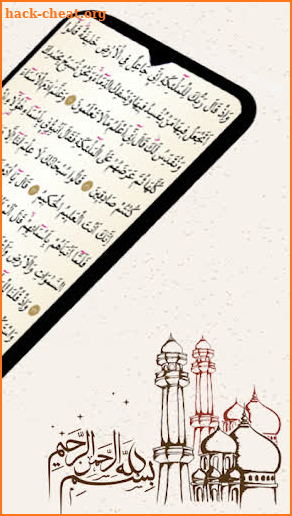 وَإِذْ قَالَ رَبُّكَ لِلْمَلَٰٓئِكَةِ إِنِّى جَاعِلٌ فِى ٱلْأَرْضِ خَلِيفَةً قَالُ
أَتَجْعَلُ فِيهَا مَن يُفْسِدُ فِيهَا وَيَسْفِكُ ٱلدِّمَآءَ وَنَحْنُ نُسَبِّحُ بِحَمْدِكَ
وَنُقَدِّسُ لَكَ قَالَ إِنِّىٓ أَعْلَمُ مَا لَا تَعْلَمُونَ وَعَلَّمَ ءَادَمَ ٱلْأَسْمَآءَ
كُلَّهَا ثُمَّ عَرَضَهُمْ عَلَى ٱلْمَلَٰٓئِكَةِ فَقَالَ أَنۢبِـُٔونِى بِأَسْمَآءِ هَٰٓؤُلَآءِ
كُنتُمْ صَٰدِقِينَ قَالُوا۟ سُبْحَٰنَكَ لَا عِلْمَ لَنَآ
إِنَّكَ أَنتَ ٱلْعَلِيمُ ٱلْحَكِيمُ قَالَ
فَلَمَّآ أَنۢبَأَهُم بِأَسْمَآئِهِمْ قَالَ
ٱلسَّمَٰوَٰتِ وَٱلْأَرْضِ
وَإِذْ قُلْنَا
بسم الله الرحمن الرحيم
hack-cheat.org